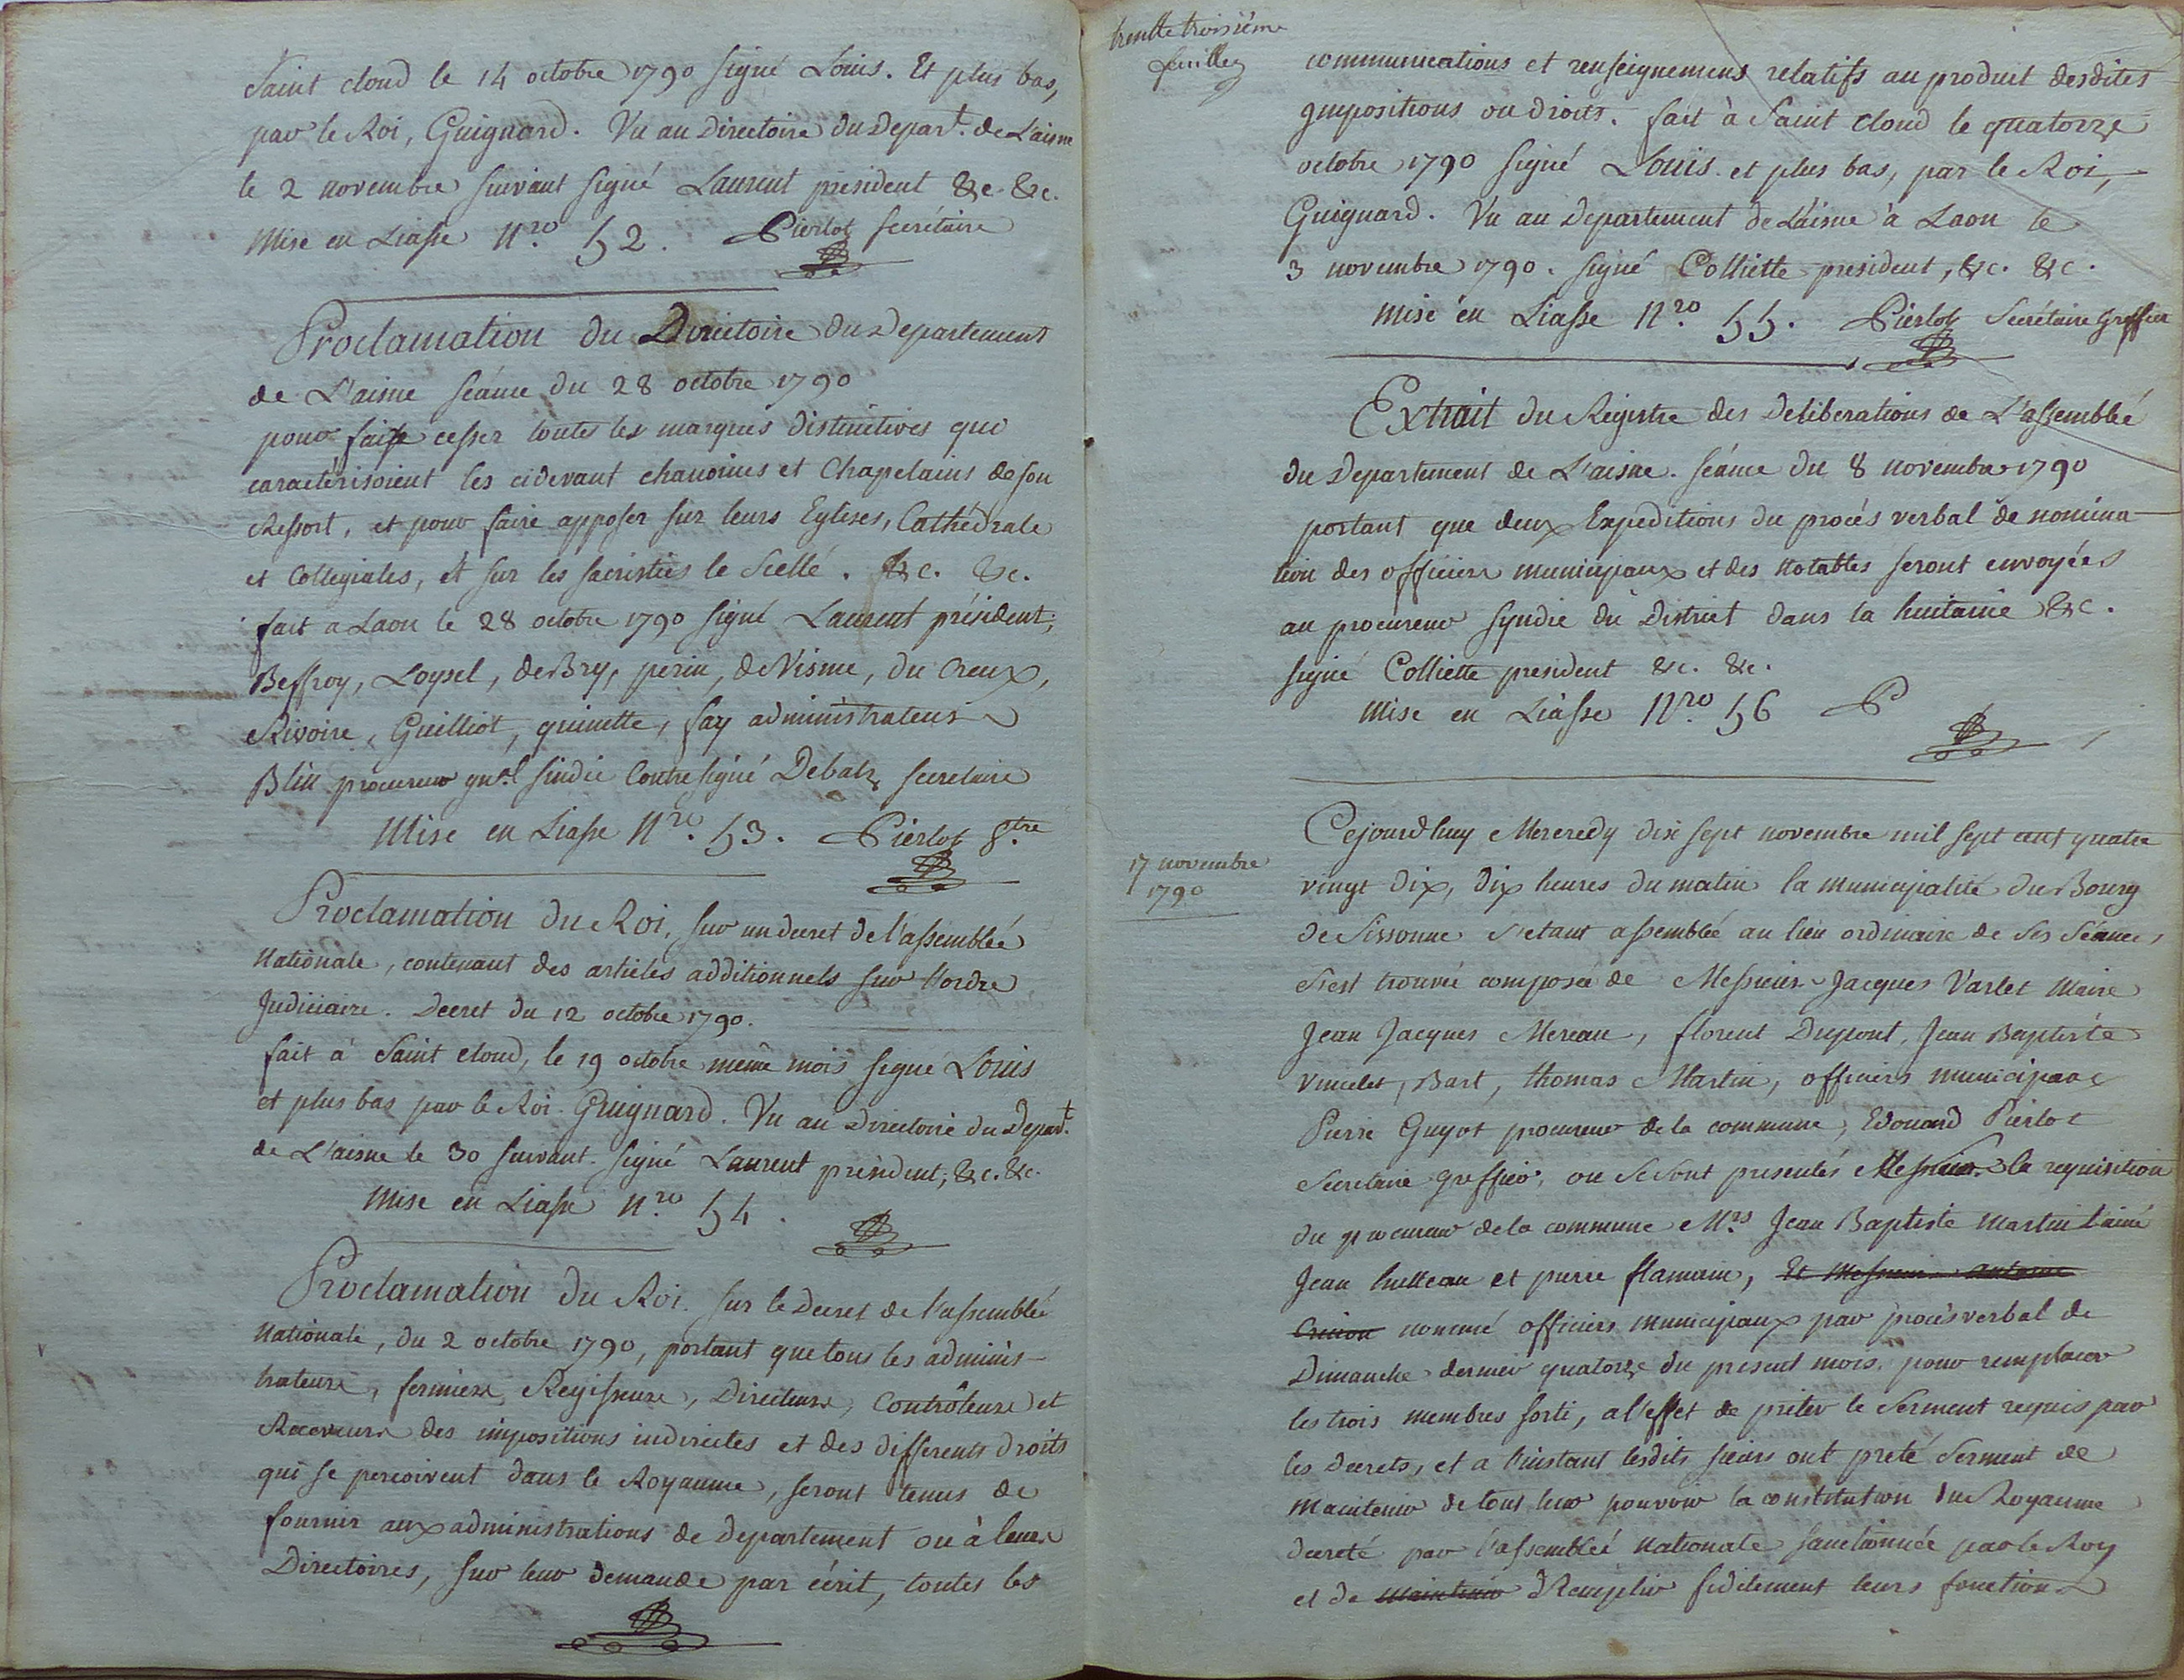 Saint cloud le 14 octobre 1790 signé Louis. Et plus bas,
par le Roi, Guignard. Vu au Directoire du Depart.t de L'aisne
le 2 novembre suivant signé Laurent president &c &c.
Mise en Liasse N.ro 52. Pierlot secrétaire
Proclamation du Directoire du Departement
de L'aisne séance du 28 octobre 1790
pour faire cesser toutes les marques distinctives qui
caractérisoient les cidevant chanoines et Chapelains de son
Ressort, et pour faire apposer sur leurs Eglises, Cathédrale
et Collegiales, et sur les sacristies le Scellé. &c. &c.
fait a Laon le 28 octobre 1790 signé Laurent président,
Beffroy, Loysel, deBry, perin, de Visme, du Creux,
Rivoire, Guilliot, quinette, fay administrateurs
Blin procureur gn.al sindic Contresigné Debatz secretaire
Mise en Liasse N.ro 53. Pierlot S.tre
Proclamation du Roi, sur un decret de l'assemblée
Nationale, contenant des articles additionnels sur l'ordre
Judiciaire. Decret du 12 octobre 1790.
fait à Saint cloud, le 19 octobre même mois signé Louis
et plus bas par le Roi Guignard. Vu au Directoire du Depar.t
de L'aisne le 30 suivant. signé Laurent président, &c. &c.
Mise en Liasse N.ro 54.
Proclamation du Roi. sur le Decret de l'assemblée
Nationale, du 2 octobre 1790, portant que tous les adminis-
trateurs, fermiers, Regisseurs, Directeurs, Contrôleurs et
Receveurs des impositions indirectes et des differents droits
qui se percoivent dans le Royaume, seront tenus de
fournir aux administrations de Departement ou à leurs
Directoires, sur leur demande par écrit, toutes les
trentte troisiéme
feuillet
communications et renseignemens relatifs au produit desdites
impositions ou droits. fait à Saint cloud le quatorze
octobre 1790 signé Louis. et plus bas, par le Roi,
Guignard. Vu au Departement de L'aisne à Laon le
3 novembre 1790. signé Colliette president, &c. &c.
Mise en Liasse N.ro 55. Pierlot Secrétaire Greffier
Extrait du Registre des Deliberations de L'assemblée
du Departement de L'aisne. Séance du 8 novembre 1790
portant que deux Expeditions du procés verbal de nomina-
tion des officiers municipaux et des Notables seront envoyées
au procureur syndic du District dans la huitaine &c.
signé Colliette president &c. &c.
Mise en Liasse N.ro 56 P
17 novembre
1790
Cejourdhuy Mercredy dix sept novembre mil sept cent quatre
vingt dix, dix heures du matin la municipalité du Bourg
de Sissonne s'etant assemblée au lieu ordinaire de ses séances,
s'est trouvée composée de Messieurs Jacques Varlet Maire
Jean Jacques Mereau, florent Dupont, Jean Baptiste
Vincelet, Bart, thomas Martin, officiers municipaux
Pierre Guyot procureur de la commune, Edouard Pierlot
Secretaire greffier, ou se sont presentés a la requisition
du procureur de la commune M.rs Jean Baptiste Martin l'ainé
Jean hutteau et pierre flamain, Et Messieurs Antoine
nommé officiers municipaux par procès verbal de
Dimanche dernier quatorze du present mois. pour remplacer
les trois membres sorti, a l'effet de prêter le serment requis par
les Decrets, et a l'instant lesdits sieurs ont preté serment de
Maintenir de tout leur pouvoir la constitution du Royaume
decreté par l'assemblée Nationale sanctionnée par le Roy
et de Maintenir Remplir fidelement leurs fonctions